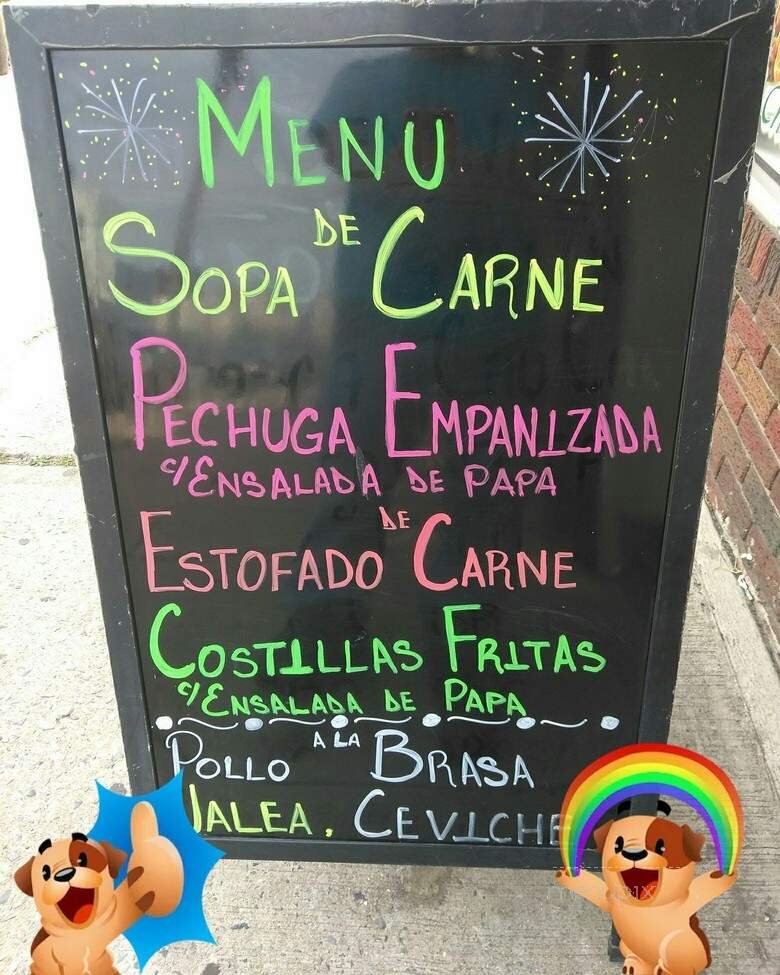 MENU
SOPA DE CARNE
PECHUGA EMPANIZADA
c/ENSALADA DE PAPA
ESTOFADO DE CARNE
COSTILLAS FRITAS
c/ENSALADA DE PAPA
POLLO A LA BRASA
JALEA, CEVICHE